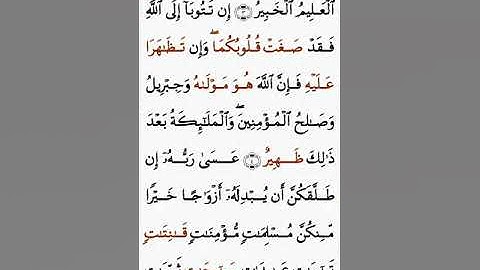 ٱلْعَلِيمُ ٱلْخَبِيرُ ۝٣ إِن تَتُوبَآ إِلَى ٱللَّهِ
فَقَدْ صَغَتْ قُلُوبُكُمَا ۖ وَإِن تَظَٰهَرَا
عَلَيْهِ فَإِنَّ ٱللَّهَ هُوَ مَوْلَىٰهُ وَجِبْرِيلُ
وَصَٰلِحُ ٱلْمُؤْمِنِينَ ۖ وَٱلْمَلَٰٓئِكَةُ بَعْدَ
ذَٰلِكَ ظَهِيرٌ ۝٤ عَسَىٰ رَبُّهُۥٓ إِن
طَلَّقَكُنَّ أَن يُبْدِلَهُۥٓ أَزْوَٰجًا خَيْرًا
مِّنكُنَّ مُسْلِمَٰتٍ مُّؤْمِنَٰتٍ قَٰنِتَٰتٍ